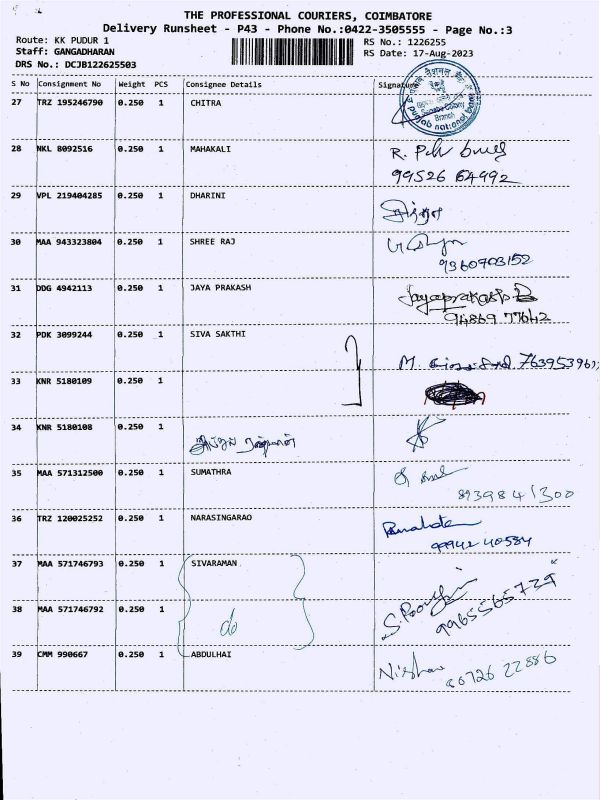 THE PROFESSIONAL COURIERS, COIMBATORE
Delivery Runsheet - P43 - Phone No.:0422-3505555 - Page No.:3
Route: KK PUDUR 1
RS No.: 1226255
Staff: GANGADHARAN
RS Date: 17-Aug-2023
DRS No.: DCJB122625503
S No Consignment No Weight PCS Consignee Details Signature
27 TRZ 195246790 0.250 1 CHITRA
Branch
punjab national bank
28 NKL 8092516 0.250 1 MAHAKALI R.
99526 64992
29 VPL 219404285 0.250 1 DHARINI
30 MAA 943323804 0.250 1 SHREE RAJ
9360703152
31 DDG 4942113 0.250 1 JAYA PRAKASH Jayaprakash
94869 77642
32 PDK 3099244 0.250 1 SIVA SAKTHI
M.
33 KNR 5180109 0.250 1
34 KNR 5180108 0.250 1
35 MAA 571312500 0.250 1 SUMATHRA
8939841300
36 TRZ 120025252 0.250 1 NARASINGARAO
99942 40584
37 MAA 571746793 0.250 1 SIVARAMAN
9965565729
38 MAA 571746792 0.250 1 do
39 CMM 990667 0.250 1 ABDULHAI
80726 22886